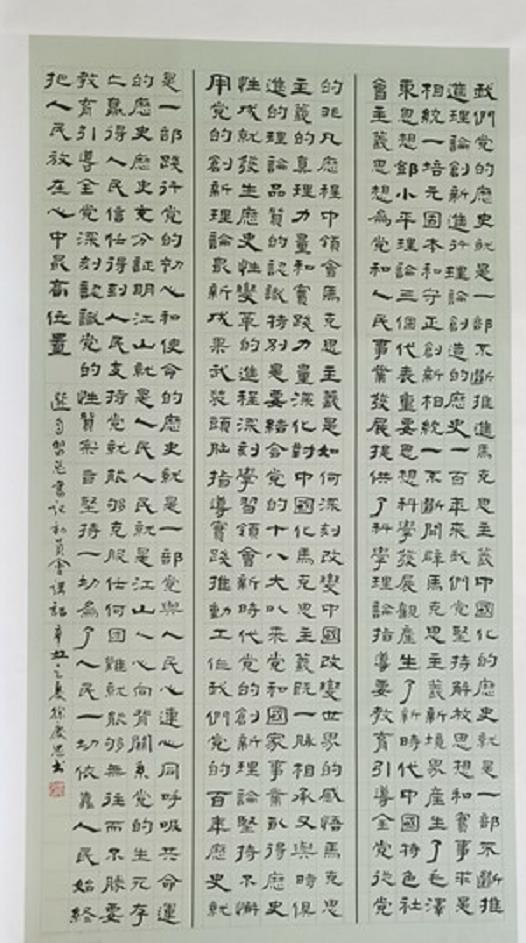 我們黨的歷史就是一部不斷推進馬克思主義中國化的歷史就是一部不斷推
進理論創新進行理論創造的歷史一百年來我們黨堅持解放思想和實事求是
相統一培元固本和守正創新相統一不斷開辟馬克思主義新境界產生了毛澤
東思想鄧小平理論三個代表重要思想科學發展觀產生了新時代中國特色社
會主義思想為黨和人民事業發展提供了科學理論指導要教育引導全黨從黨
的非凡歷程中領會馬克思主義是如何深刻改變中國改變世界的感悟馬克思
主義的真理力量和實踐力量深化對中國化馬克思主義既一脈相承又與時俱
進的理論品質的認識特別是要結合黨的十八大以來黨和國家事業取得歷史
性成就發生歷史性變革的進程深刻學習領會新時代黨的創新理論堅持不懈
用黨的創新理論最新成果武裝頭腦指導實踐推動工作我們黨的百年歷史就
是一部踐行黨的初心和使命的歷史就是一部黨與人民心連心同呼吸共命運
的歷史歷史充分証明江山就是人民人民就是江山人心向背關系黨的生死存
亡贏得人民信任得到人民支持黨就能夠克服任何困難就能夠無往而不勝要
教育引導全黨深刻認識黨的性質宗旨堅持一切為了人民一切依靠人民始終
把人民放在心中最高位置
選自習总書记 會講話 辛丑之夏徐慶思書